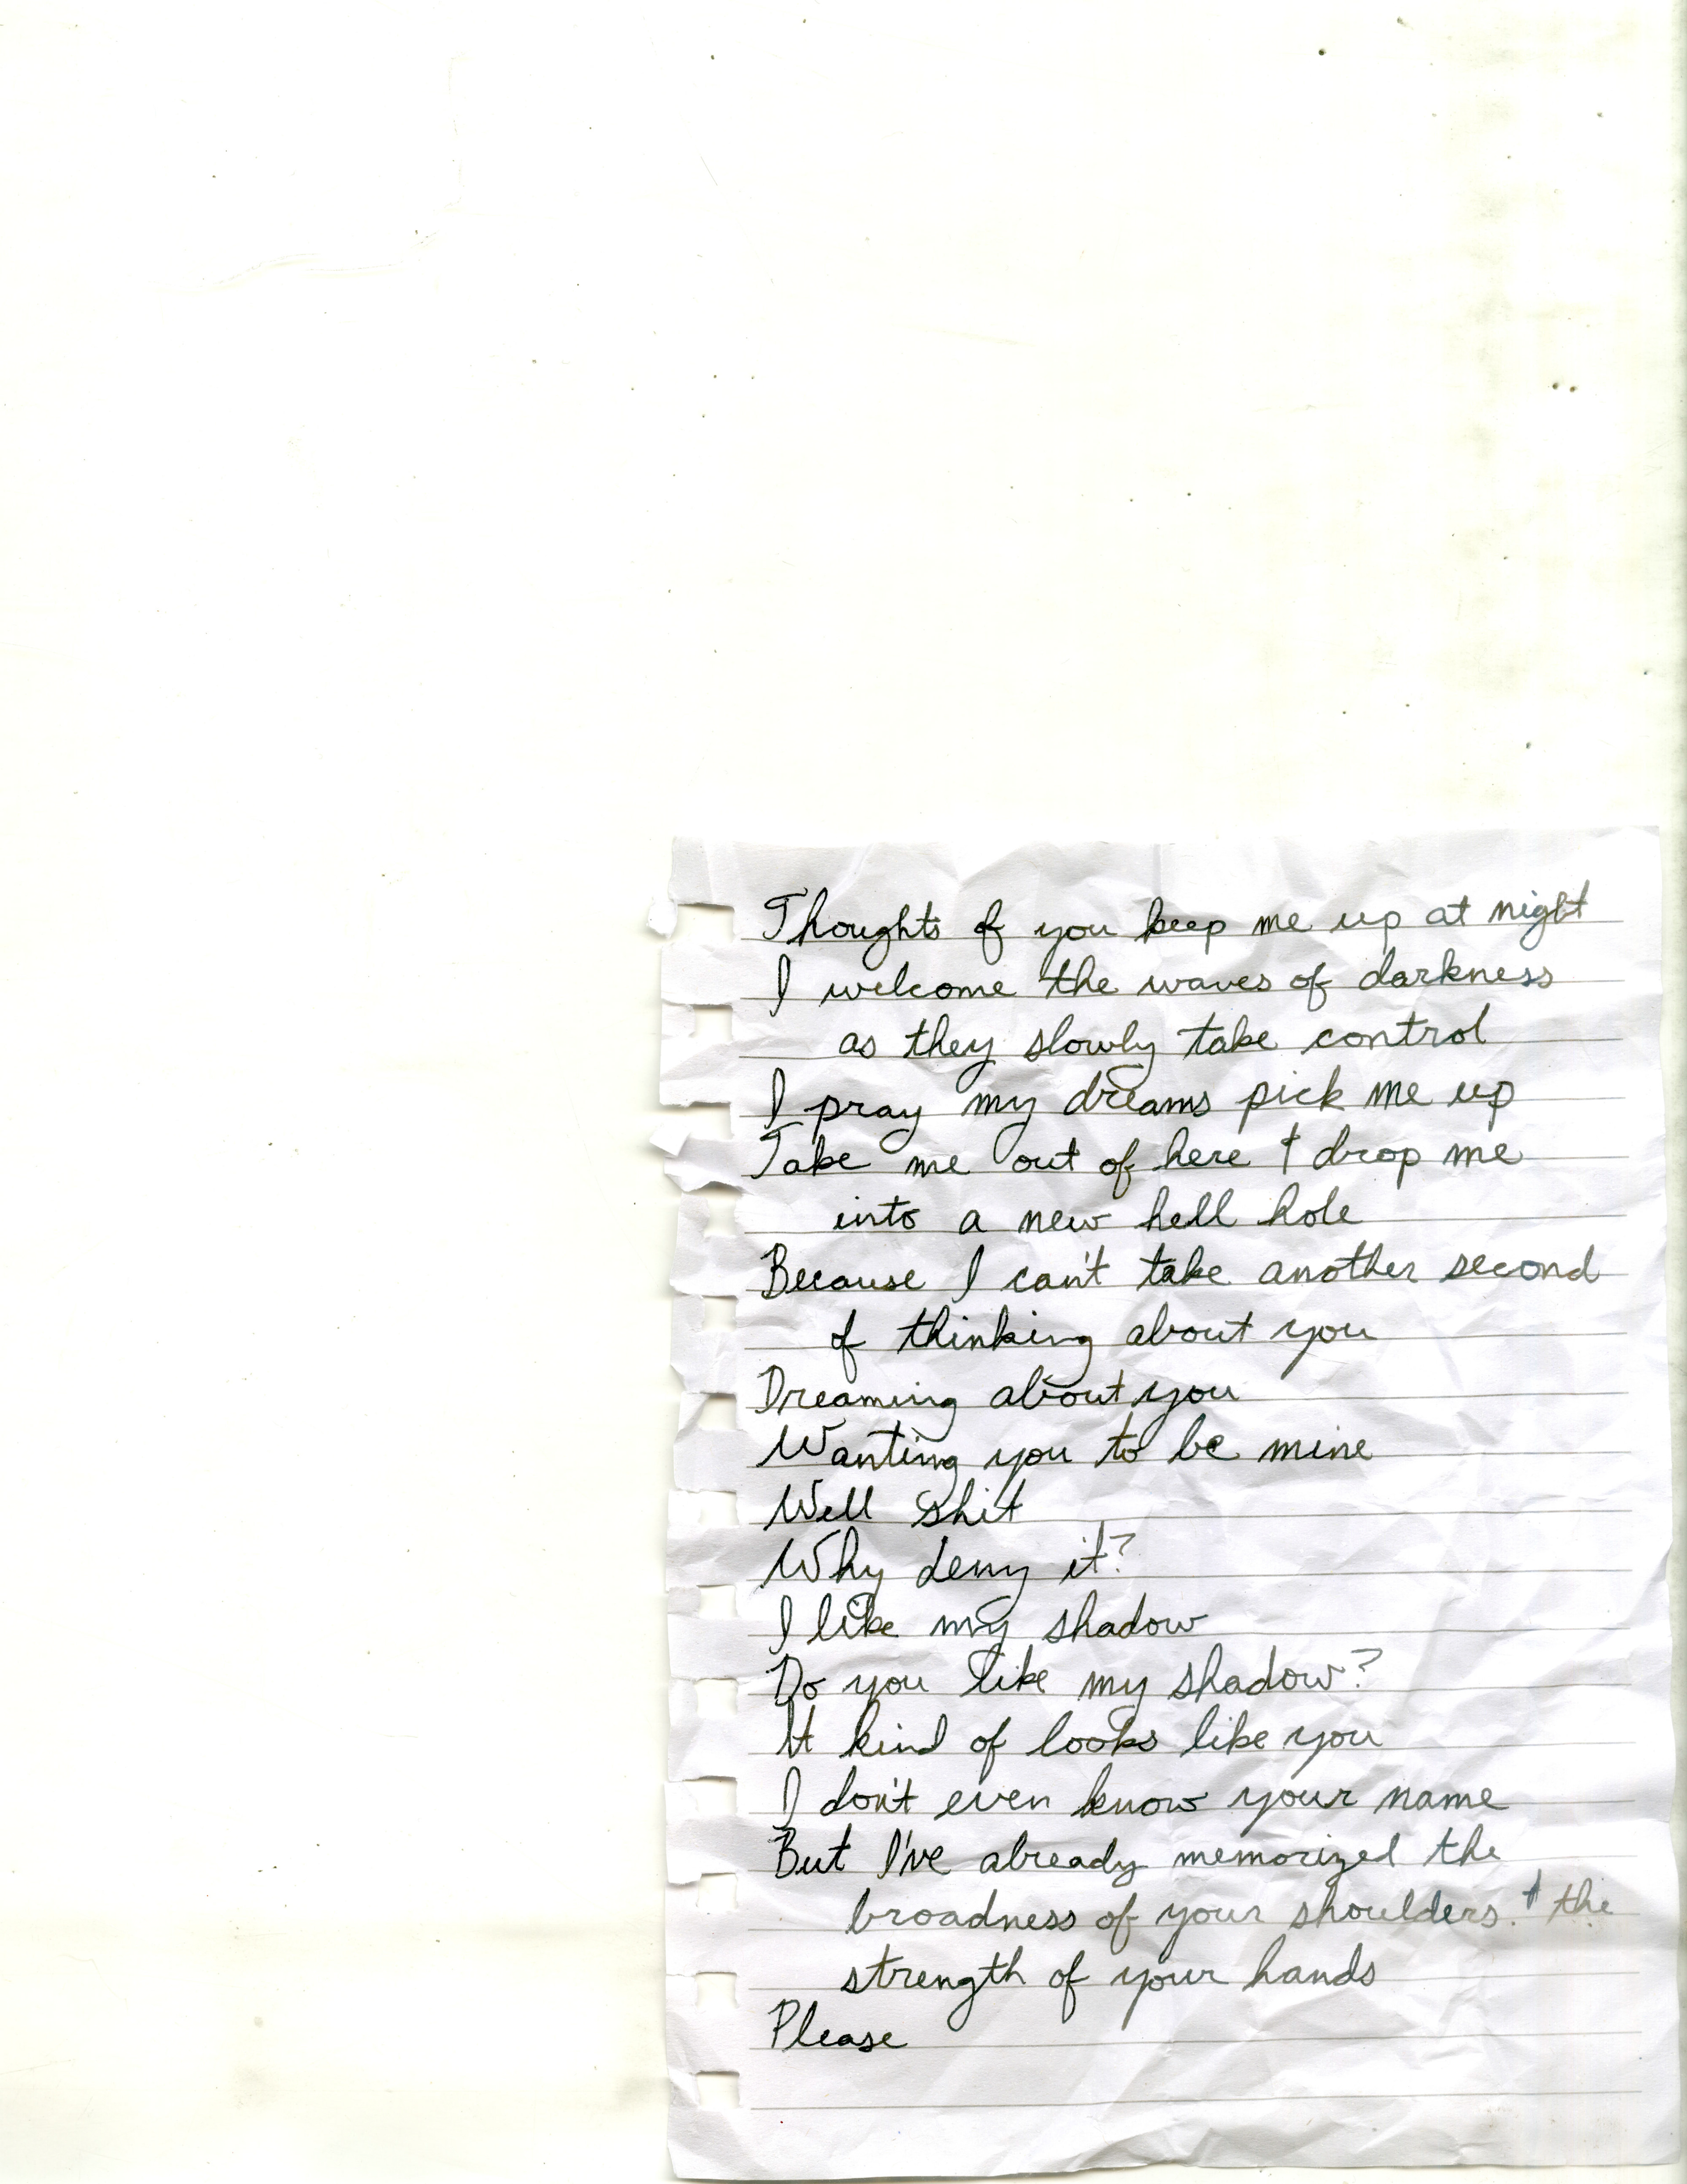 Thoughts of you keep me up at night
I welcome the waves of darkness
as they slowly take control
I pray my dreams pick me up
Take me out of here & drop me
into a new hell hole
Because I can't take another second
of thinking about you
Dreaming about you
Wanting you to be mine
Well shit
Why deny it?
I like my shadow
Do you like my shadow?
It kind of looks like you
I don't even know your name
But I've already memorized the
broadness of your shoulders & the
strength of your hands
Please